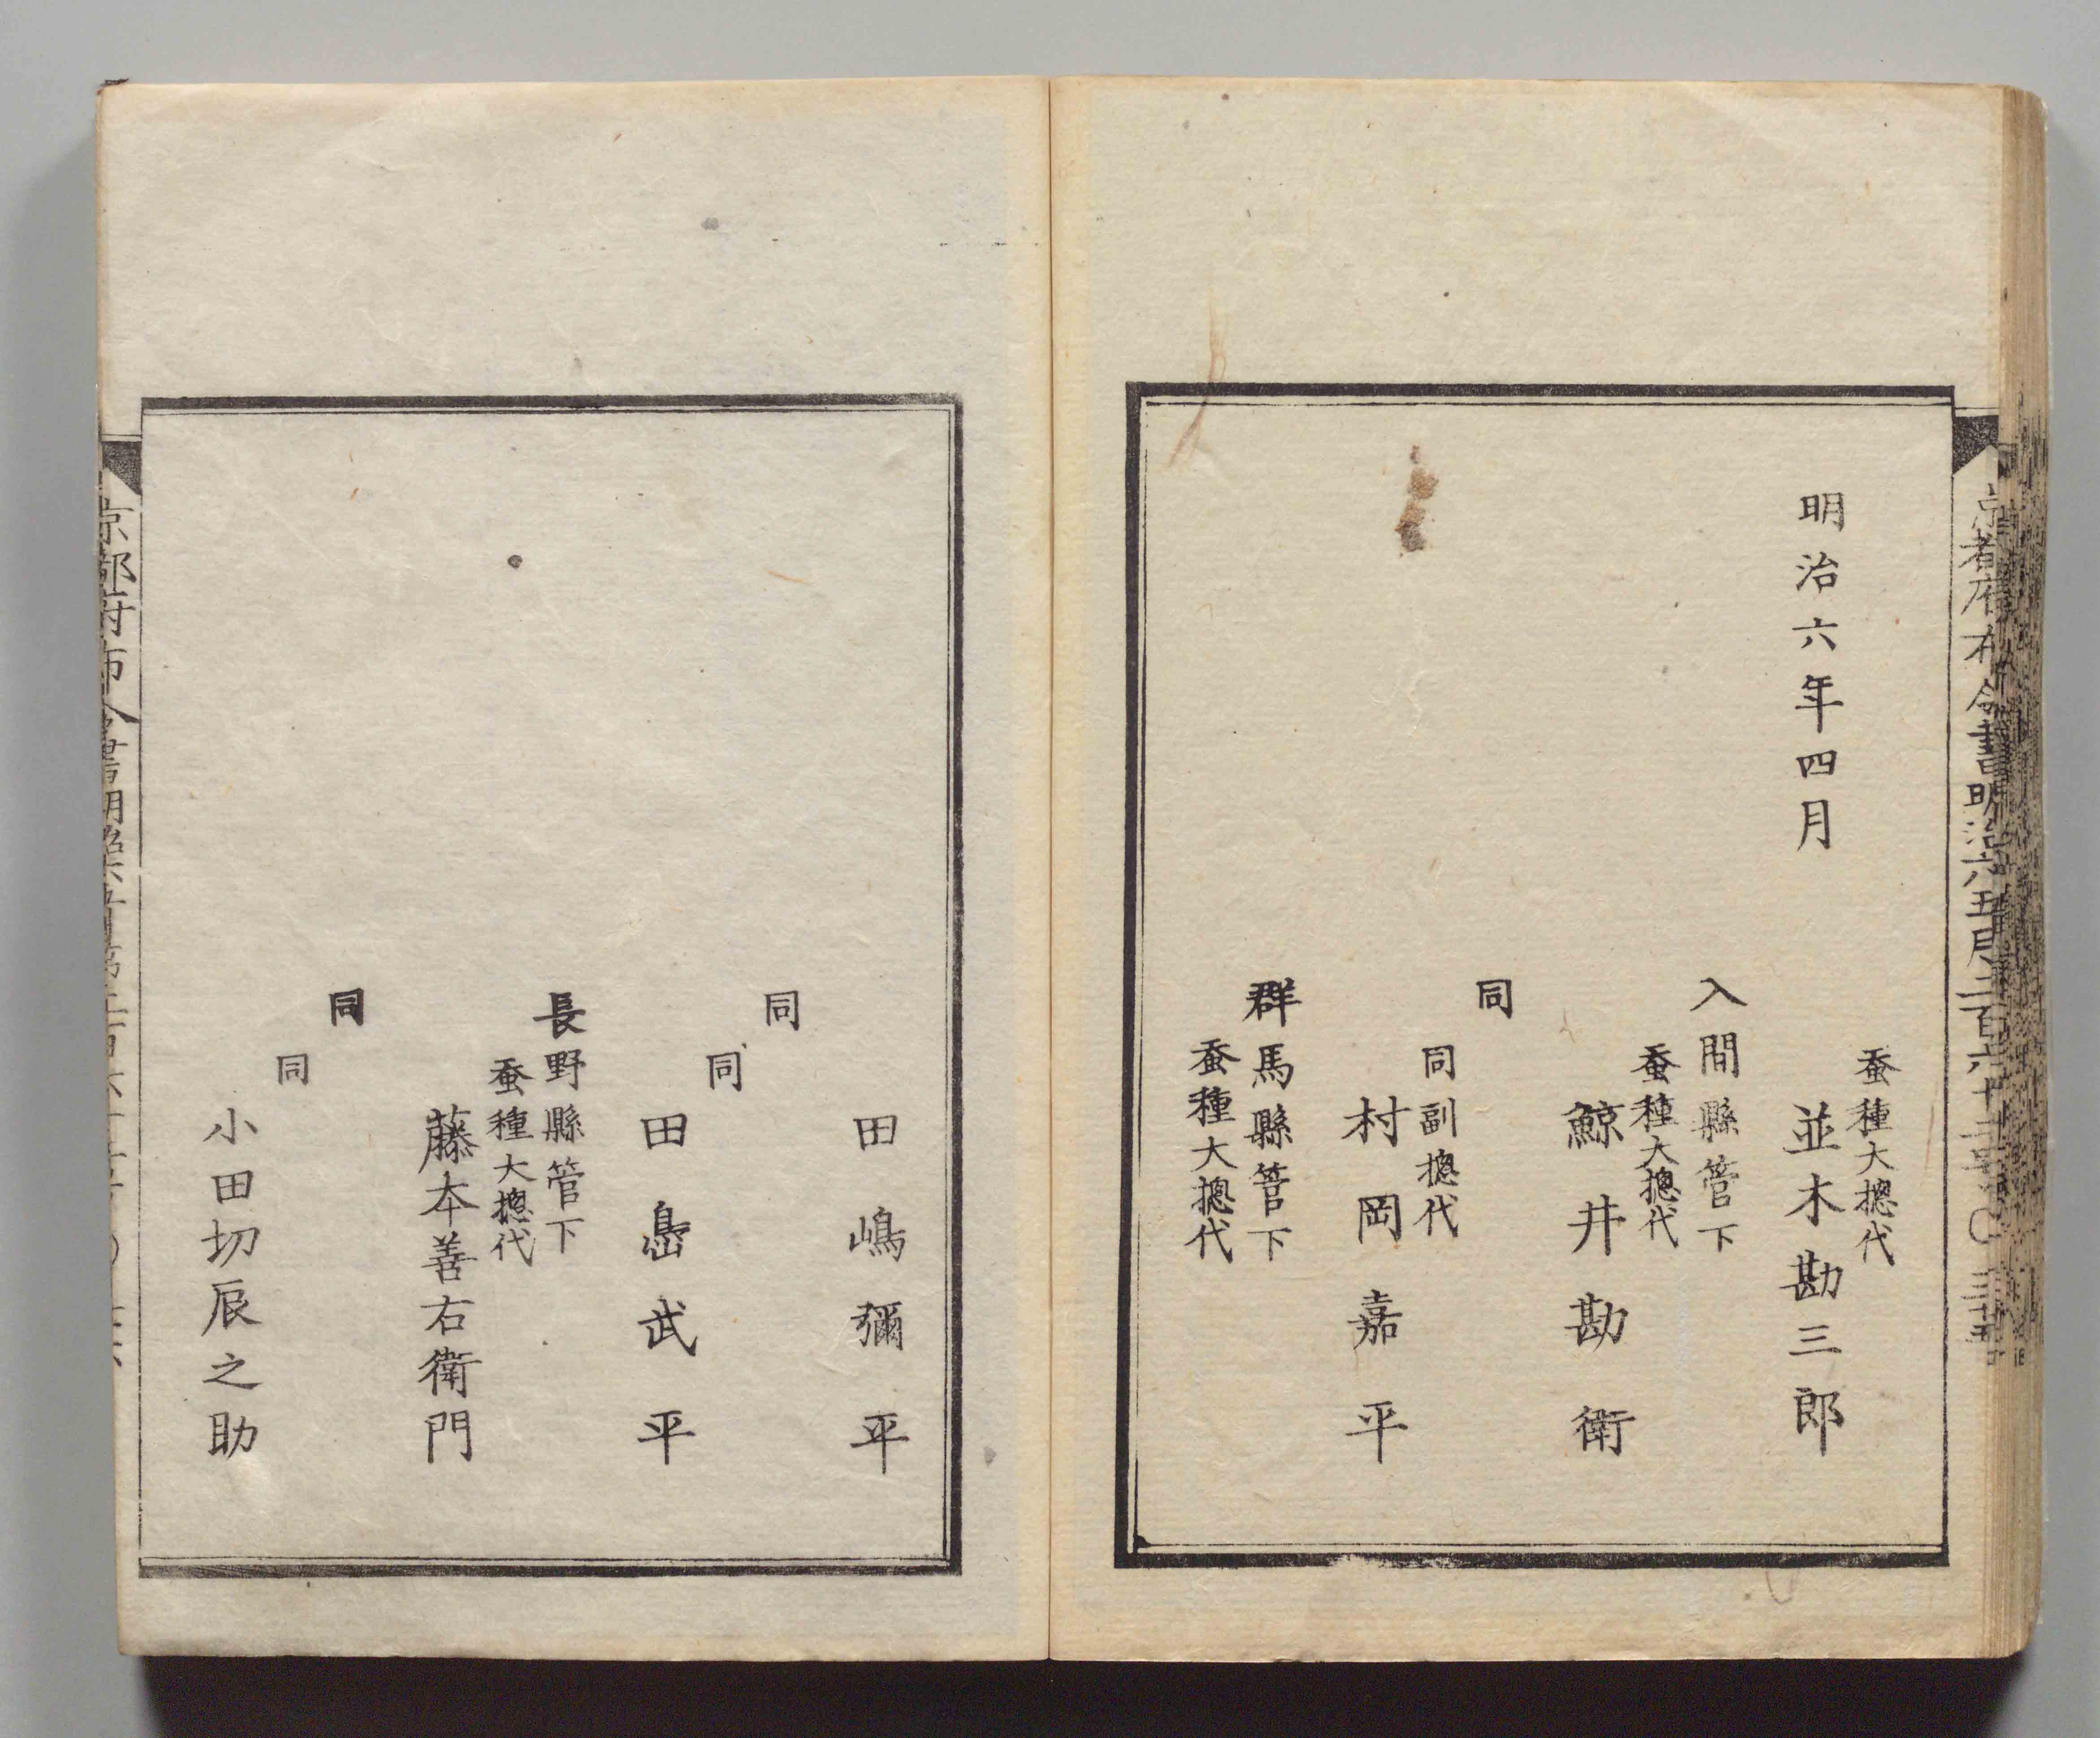 京都府布令書明治六五月二百六十三
蚕種大摠代
明治六年四月
並木勘三郎
入間縣管下
蚕種大摠代
鯨井勘衛
同
同副摠代
村岡嘉平
群馬縣管下
蚕種大摠代
田嶋彌平
同
同
田島武平
長野縣管下
蚕種大摠代
藤本善右衛門
同
同
小田切辰之助
京都府布令書明治六